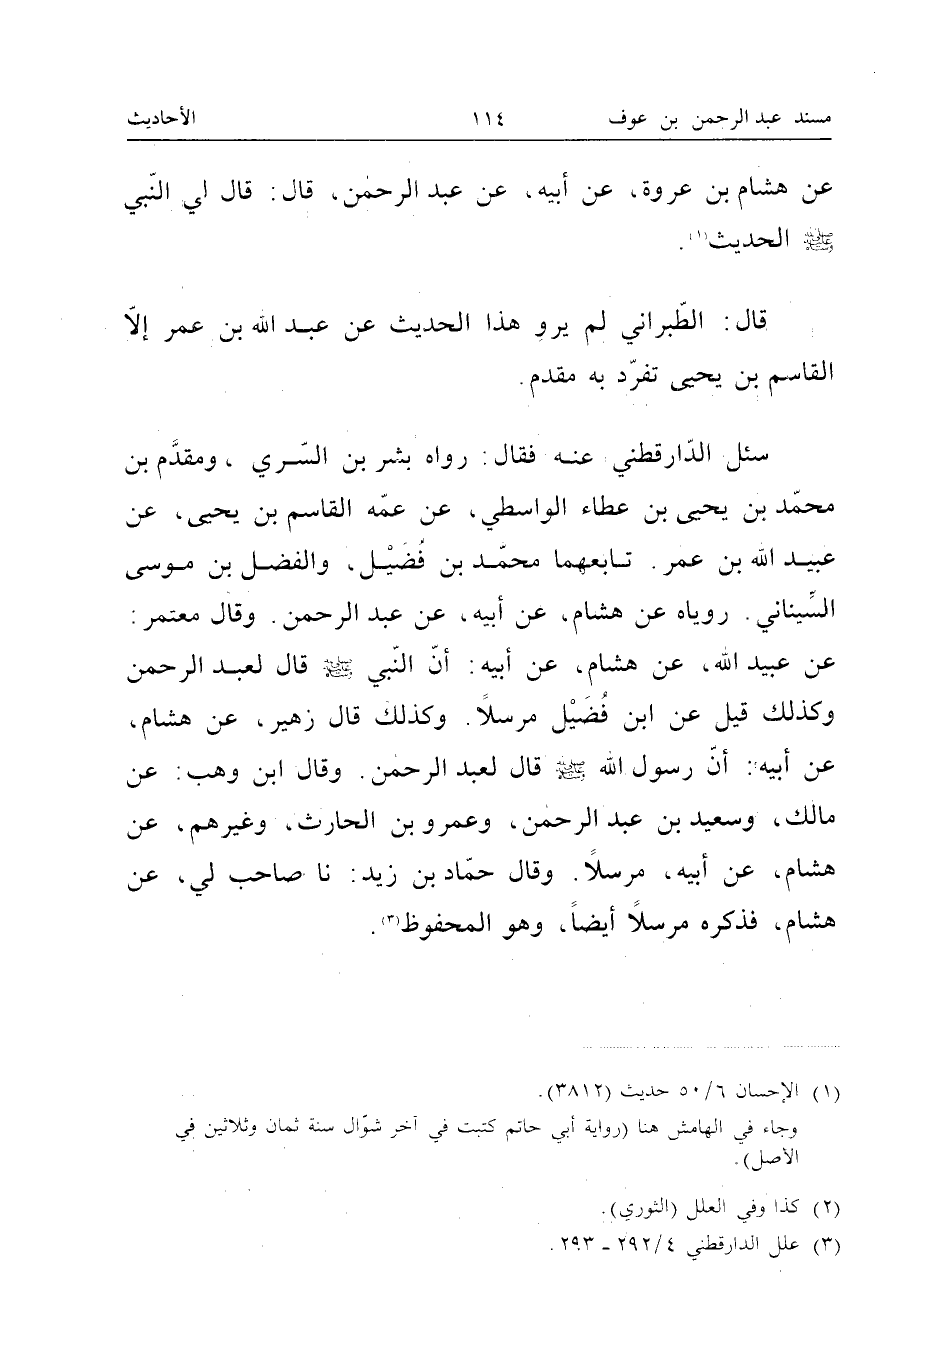 مسند عبد الرحمن بن عوف ١١٤ الأحاديث
عن هشام بن عروة، عن أبيه، عن عبد الرحمٰن، قال: قال لي النّبي
ﷺ الحديث(١).
قال: الطّبراني لم يرو هذا الحديث عن عبد الله بن عمر إلاّ
القاسم بن يحيى تفرّد به مقدم.
سئل الدّارقطني عنه فقال: رواه بشر بن السّري ، ومقدَّم بن
محمّد بن يحيى بن عطاء الواسطي، عن عمّه القاسم بن يحيى، عن
عبيد الله بن عمر. تابعهما محمّد بن فُضَيْل، والفضل بن موسى
السِّيناني. روياه عن هشام، عن أبيه، عن عبد الرحمن. وقال معتمر:
عن عبيد الله، عن هشام، عن أبيه: أنّ النّبي ﷺ قال لعبد الرحمن
وكذلك قيل عن ابن فُضَيْل مرسلاً. وكذلك قال زهير، عن هشام،
عن أبيه: أنّ رسول الله ﷺ قال لعبد الرحمٰن. وقال ابن وهب: عن
مالك، وسعيد بن عبد الرحمٰن، وعمرو بن الحارث، وغيرهم، عن
هشام، عن أبيه، مرسلاً. وقال حمّاد بن زيد: نا صاحب لي، عن
هشام، فذكره مرسلاً أيضاً، وهو المحفوظ(٣).
(١) الإحسان ٥٠/٦ حديث (٣٨١٢).
وجاء في الهامش هنا (رواية أبي حاتم كتبت في آخر شوّال سنة ثمان وثلاثين في
الأصل).
(٢) كذا وفي العلل (الثوري).
(٣) علل الدارقطني ٢٩٢/٤ ـ ٢٩٣.